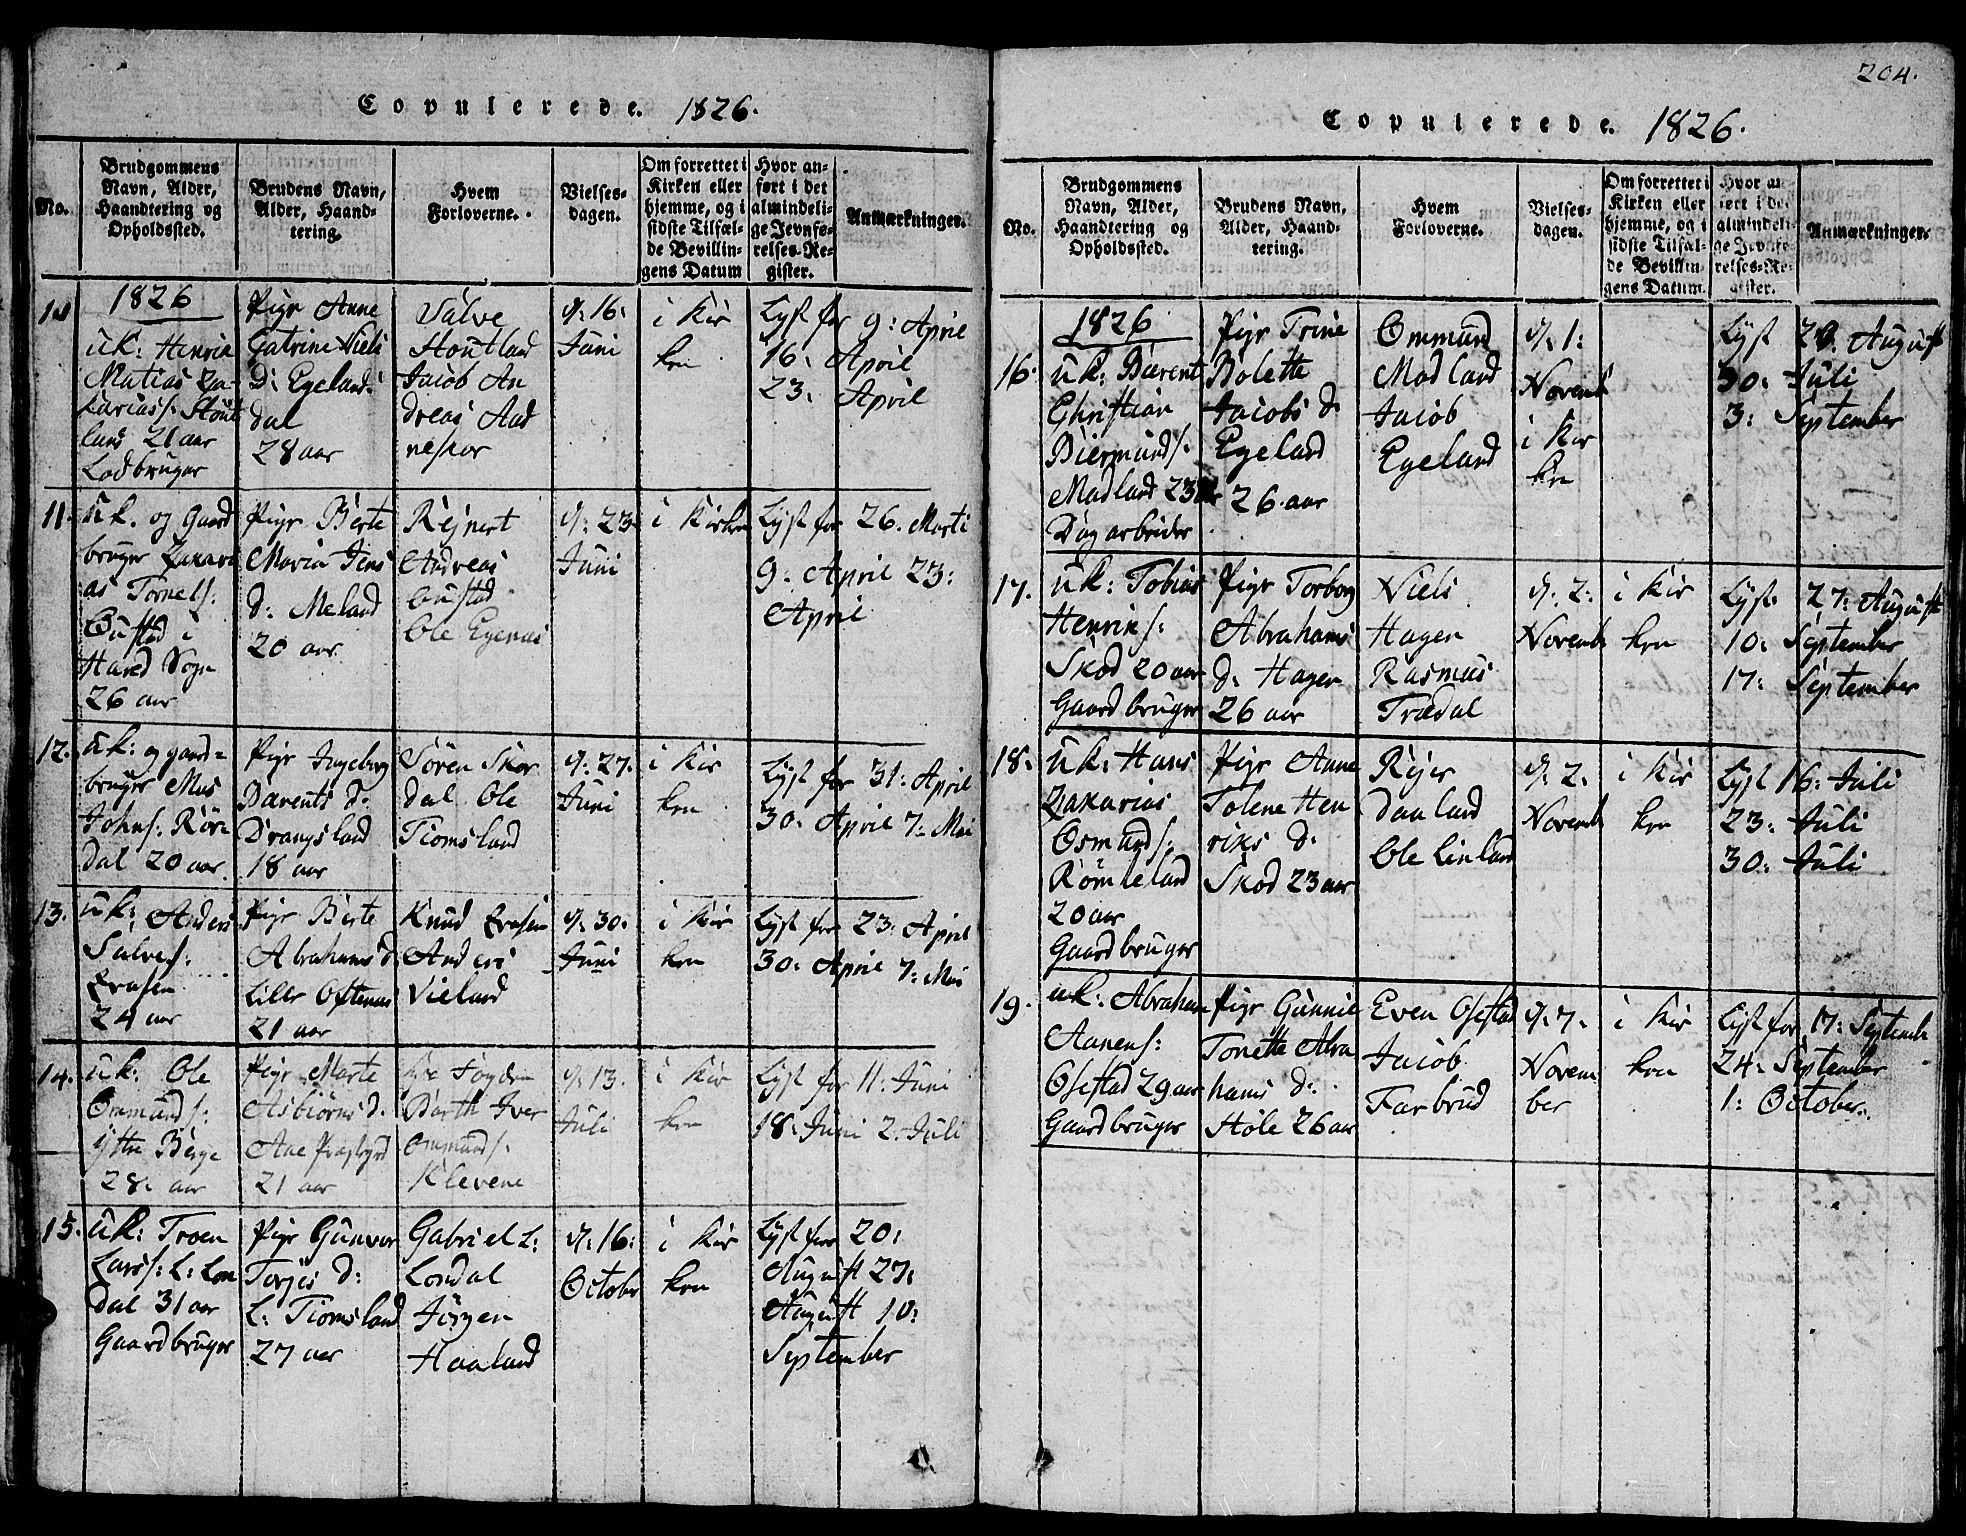 Copulerede. 1826.
No.
Brudgommens
Navn, Alder,
Haandtering og
Opholdssted.
Brudens Navn,
Alder, Haand-
tering.
Hvem
Forloverne.
Vielses-
dagen.
Om forrettet i
Kirken eller
hjemme, og i
sidste Tilfæl-
de Bevillin-
gens Datum
Hvor an-
ført i det
almindeli-
ge Jevnfø-
relses-Re-
gister.
Anmærkninger.
10
1826
uk: Henrik
Matias Za-
karias s: Stout
land 21 aar
Lodbruger
Pige Anne
Catrine Niels
D: Egelands
dal
28 aar
Salve
Stoutland
Jacob An
dreas Aad
neskar
d: 16:
Juni
i Kir
ken
Lyst for 9: April
16: April
23: April
11.
uk. og Gaard
bruger Zakari
as Tornes s:
Bustad i
Hared Sogn
26 aar
Pige Berte
Maria Jens
d: Meland
20 aar
Rejnert
Andreas
Bustad
Ole Egenas
d: 23
Juni
i Kirken
Lyst for 26. Marti
9: April 23:
April
12.
uk: og gaard=
bruger Mus
Johns: Röri
dal 20 aar
Pige Ingeborg
Bærents d:
Drangsland
18 aar
Sören Skor
dal Ole
Tiomsland
d: 27:
Juni
i Kir
ken
Lyst for 31: April
30: April 7: Mai
13.
uk: Anders
Salves:
Erasen
24 aar
Pige Berte
Abrahams d
Lille Ostenas
21 aar
Knud Erasen
Anders
Vieland
d: 30:
Juni
i Kir
ken
Lyst for 23: April
30: April 7: Mai
14.
uk: Ole
Ommunds:
ytte Berge
28: aar
Pige Marte
Asbiörns d:
Aae Præstgrd
21 aar
Barth Iver
Ommunds:
Klevene
d: 13.
Juli
i Kir
ken
Lyst for 11: Juni
18: Juni 2: Juli
15.
uk: Troen
Lars s: L: Lon
dal 31 aar
Gaardbruger
Pige Gunvor
Torjes d:
L: Tiomsland
27 aar
Gabriel L:
Londal
Jörgen
Haaland
d: 16:
October
i Kir
ken
Lyst for 20:
August 27:
August 10:
September
204.
Copulerede. 1826.
No.
Brudgommens
Navn, Alder,
Haandtering og
Opholdssted.
Brudens Navn,
Alder, Haand-
tering.
Hvem
Forloverne.
Vielses-
dagen.
Om forrettet i
Kirken eller
hjemme, og i
sidste Tilfæl-
de Bevillin-
gens Datum.
Hvor an-
ført i det
almindeli-
ge Jevnfø-
relses-Re-
gister.
Anmærkninger.
16.
1826
uk: Bærent
Christian
Biermunds:
Madland 23 aar
Dagarbeider
Pige Trine
Bolette
Jacobs d:
Egeland
26 aar
Ommund
Madland
Jacob
Egeland
d: 1:
Novemb
i Kir
ken
Lyst 20. August
30: Juli
3: September
17.
uk: Tobias
Henriks:
Skod 20 aar
Gaardbruger
Pige Torborg
Abrahams
d: Hagen
26 aar
Niels
Hagen
Rasmus
Trædal
d: 2:
Novemb
i Kir
ken
Lyst 27: August
10: September
17: September
18.
uk: Hans
Zakarias
Osmunds:
Römleland
20 aar
Gaardbruger
Pige Anne
Tolene Hen
riks d:
Skod 23 aar
Rejer
Daaland
Ole Linland
d: 2:
Novemb
i Kir
ken
Lyst 16: Juli
23: Juli
30: Juli
19.
uk: Abraham
Aanens:
Osestad 29 aar
Gaardbruger
Pige Gunnil
Tonette Abra
hams d:
Hole 26 aar
Even Osestad
Jacob
Farbrud
d: 7:
Novem
ber
i Kir
ken
Lyst for 17: Septemb
24: September
1: October.